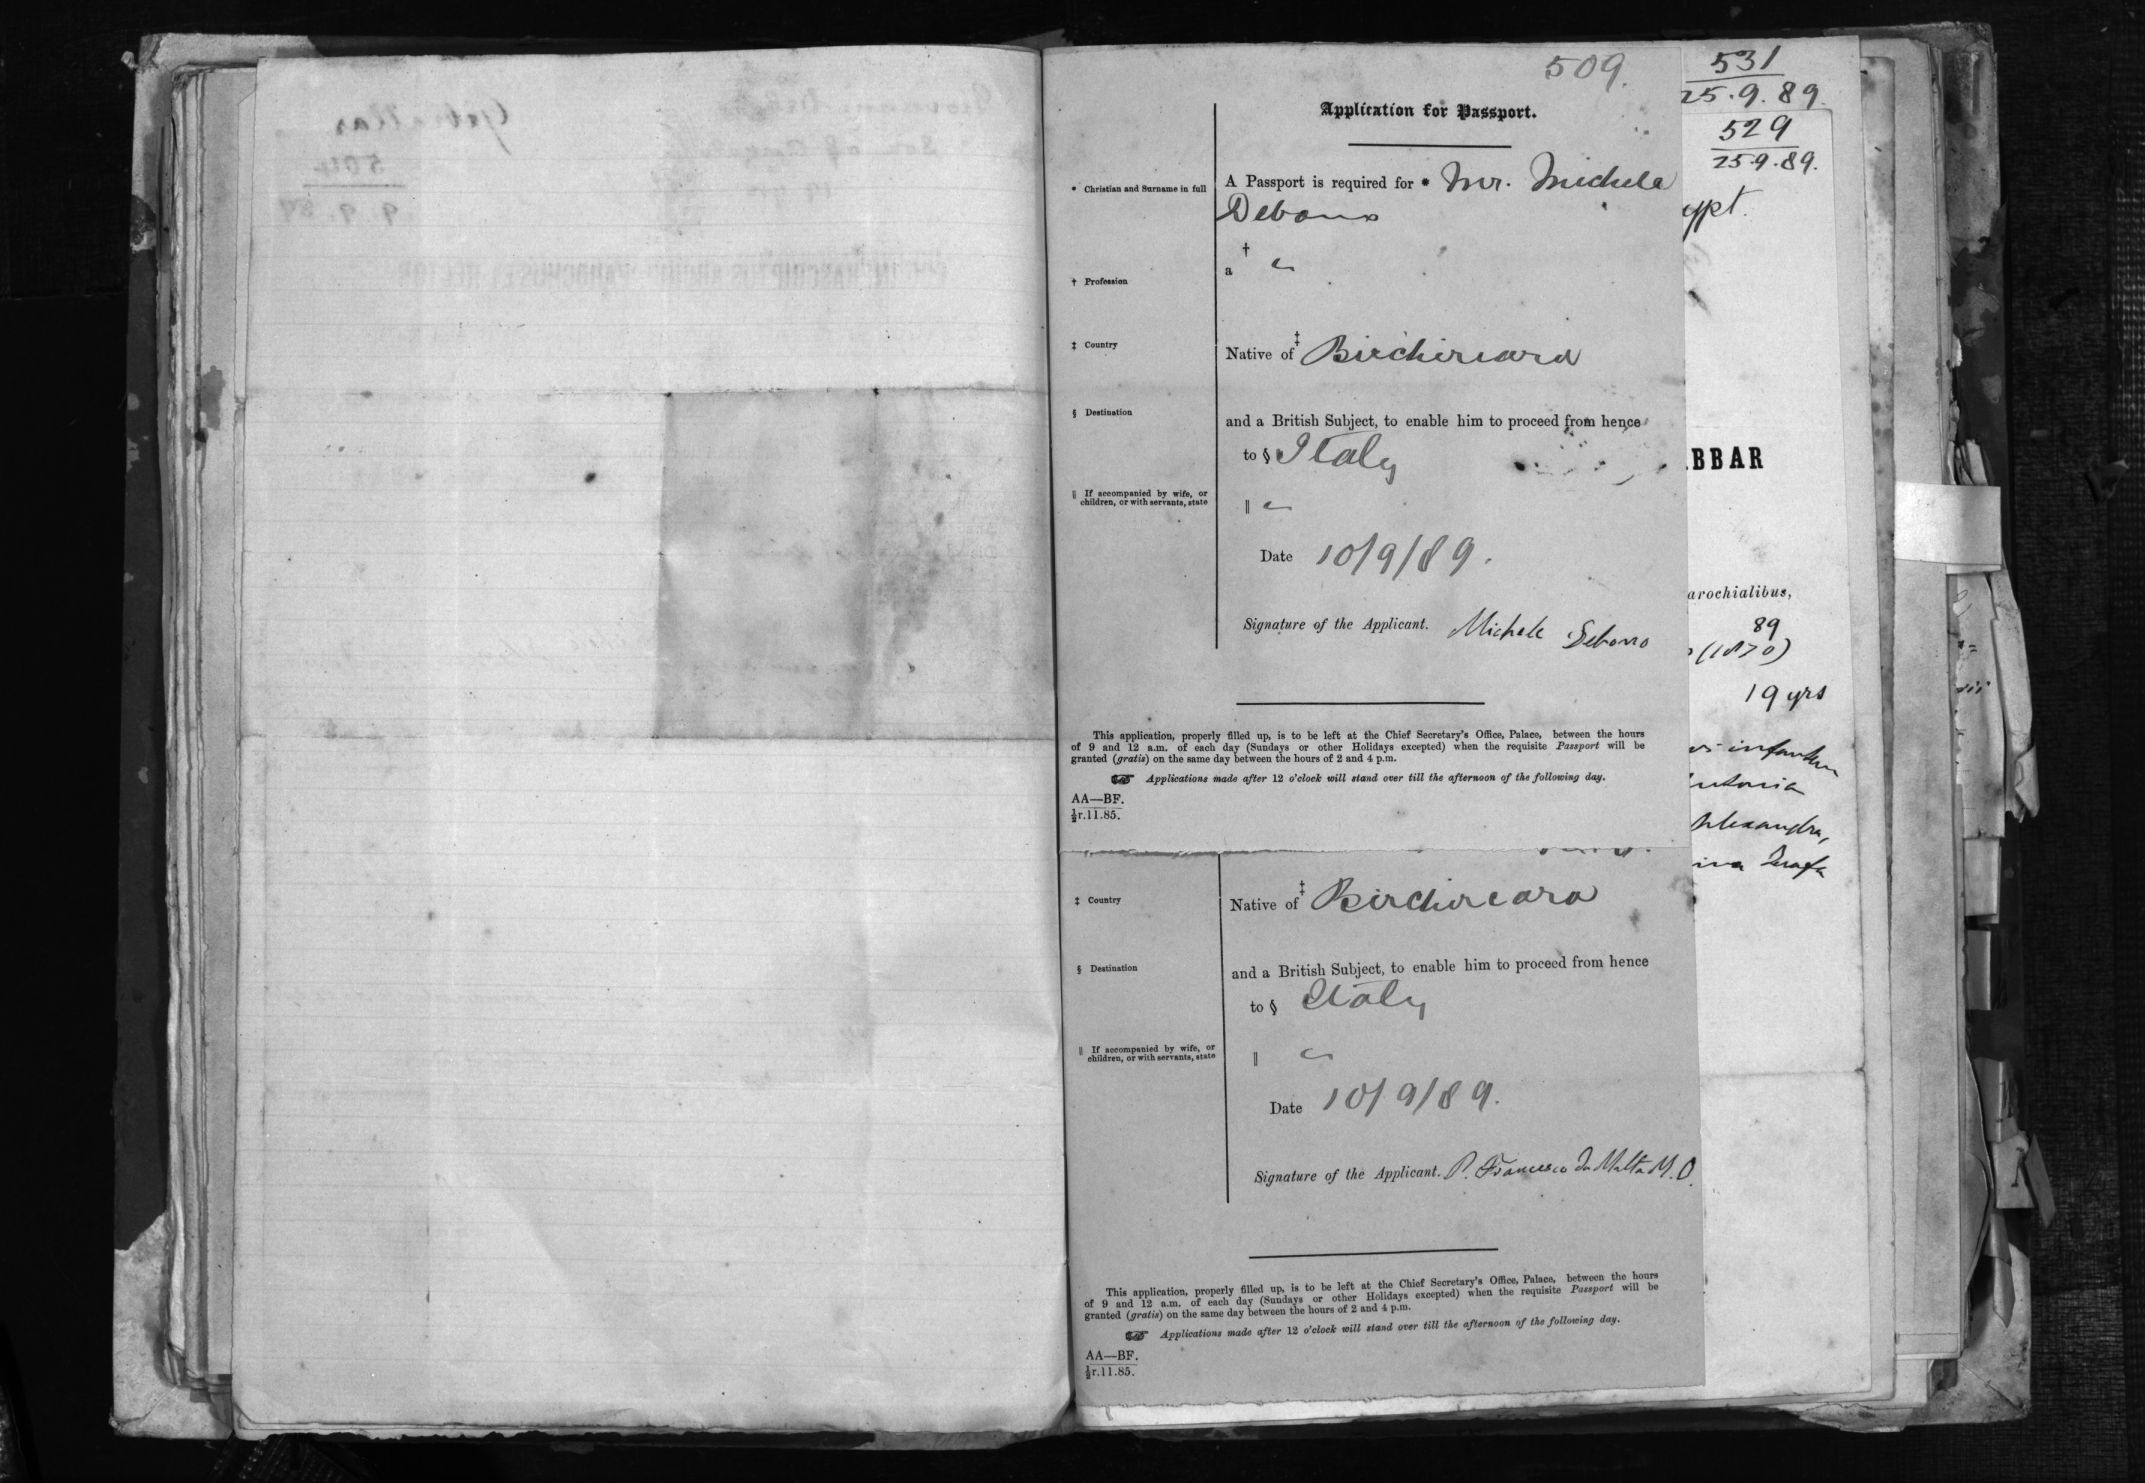 509.
Application for Passport.
* Christian and Surname in full
A Passport is required for * Mr. Michele
Debono
† Profession
a † "
‡ Country
Native of ‡ Birchircara
§ Destination
and a British Subject, to enable him to proceed from hence
to § Italy
‖ If accompanied by wife, or
children, or with servants, state
‖ "
Date 10/9/89.
Signature of the Applicant. Michele Debono
This application, properly filled up, is to be left at the Chief Secretary's Office, Palace, between the hours
of 9 and 12 a.m. of each day (Sundays or other Holidays excepted) when the requisite Passport will be
granted (gratis) on the same day between the hours of 2 and 4 p.m.
☞ Applications made after 12 o'clock will stand over till the afternoon of the following day.
AA—BF.
½r.11.85.
‡ Country
Native of ‡ Birchircara
§ Destination
and a British Subject, to enable him to proceed from hence
to § Italy
‖ If accompanied by wife, or
children, or with servants, state
‖ "
Date 10/9/89.
Signature of the Applicant. P. Francesco Da Malta M. O.
This application, properly filled up, is to be left at the Chief Secretary's Office, Palace, between the hours
of 9 and 12 a.m. of each day (Sundays or other Holidays excepted) when the requisite Passport will be
granted (gratis) on the same day between the hours of 2 and 4 p.m.
☞ Applications made after 12 o'clock will stand over till the afternoon of the following day.
AA—BF.
½r.11.85.
531
25.9.89.
529
25.9.89.
ypt.
ABBAR
arochialibus,
89
(1870)
19 yrs